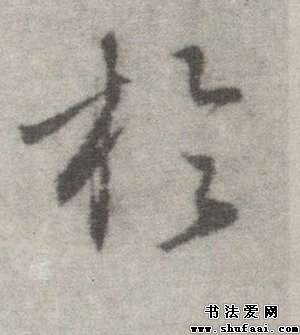 於
书法爱网
www.shufaai.com